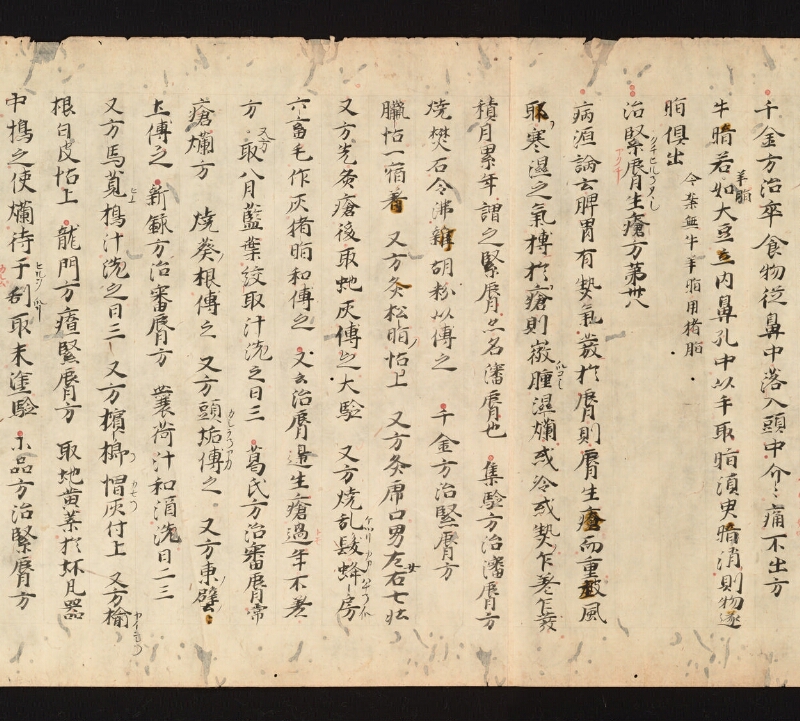 千金方治卒食物從鼻中落入頭中介〻痛不出方
牛脂若羊脂如大豆内鼻孔中以手取脂須臾脂消則物遂
脂俱出 今案無牛羊脂用猪脂
治緊脣生瘡方第卅八
病源論云脾胃有熱氣發於脣則脣生瘡而重被風
耶寒濕之氣搏於瘡則微腫濕爛或冷或熱乍差乍發
積月累年謂之緊脣亦名瀋脣也 集驗方治瀋脣方
燒樊石令沸雞胡粉以傅之 千金方治緊脣方
臘怗一宿着 又方灸松脂怗上 又方灸席口男左女右七壮
又方先灸瘡後取虵灰傅之大驗 又方燒乱髮蜂房
六畜毛作灰猪脂和傅之 又云治脣邊生瘡過年不差
方 取八月藍葉絞取汁洗之日三 葛氏方治審脣常
瘡爛方 燒葵根傅之 又方頭垢傅之 又方東壁
土傅之 新錄方治審脣方 蘘荷汁和涓洗日二三
又方馬莧擣汁洗之日三 又方檳榔帽灰付上 又方榆
根白皮怗上 龍門方瘡緊脣方 取地黄葉於坏瓦器
中擣之使爛待干刮取末塗驗 小品方治緊脣方